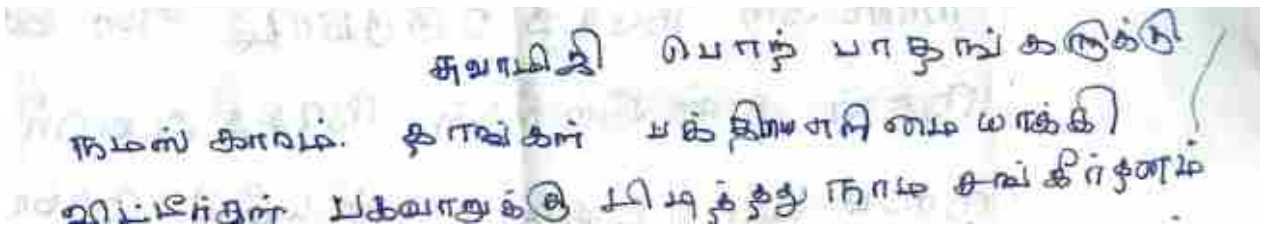 சுவாமிஜி பொற் பாதங்களுக்கு
நமஸ்காரம். தாங்கள் பக்தியை எளிமை யாக்கி
விட்டீர்கள் பகவானுக்கு பிடித்தது நாம சங்கீர்தனம்